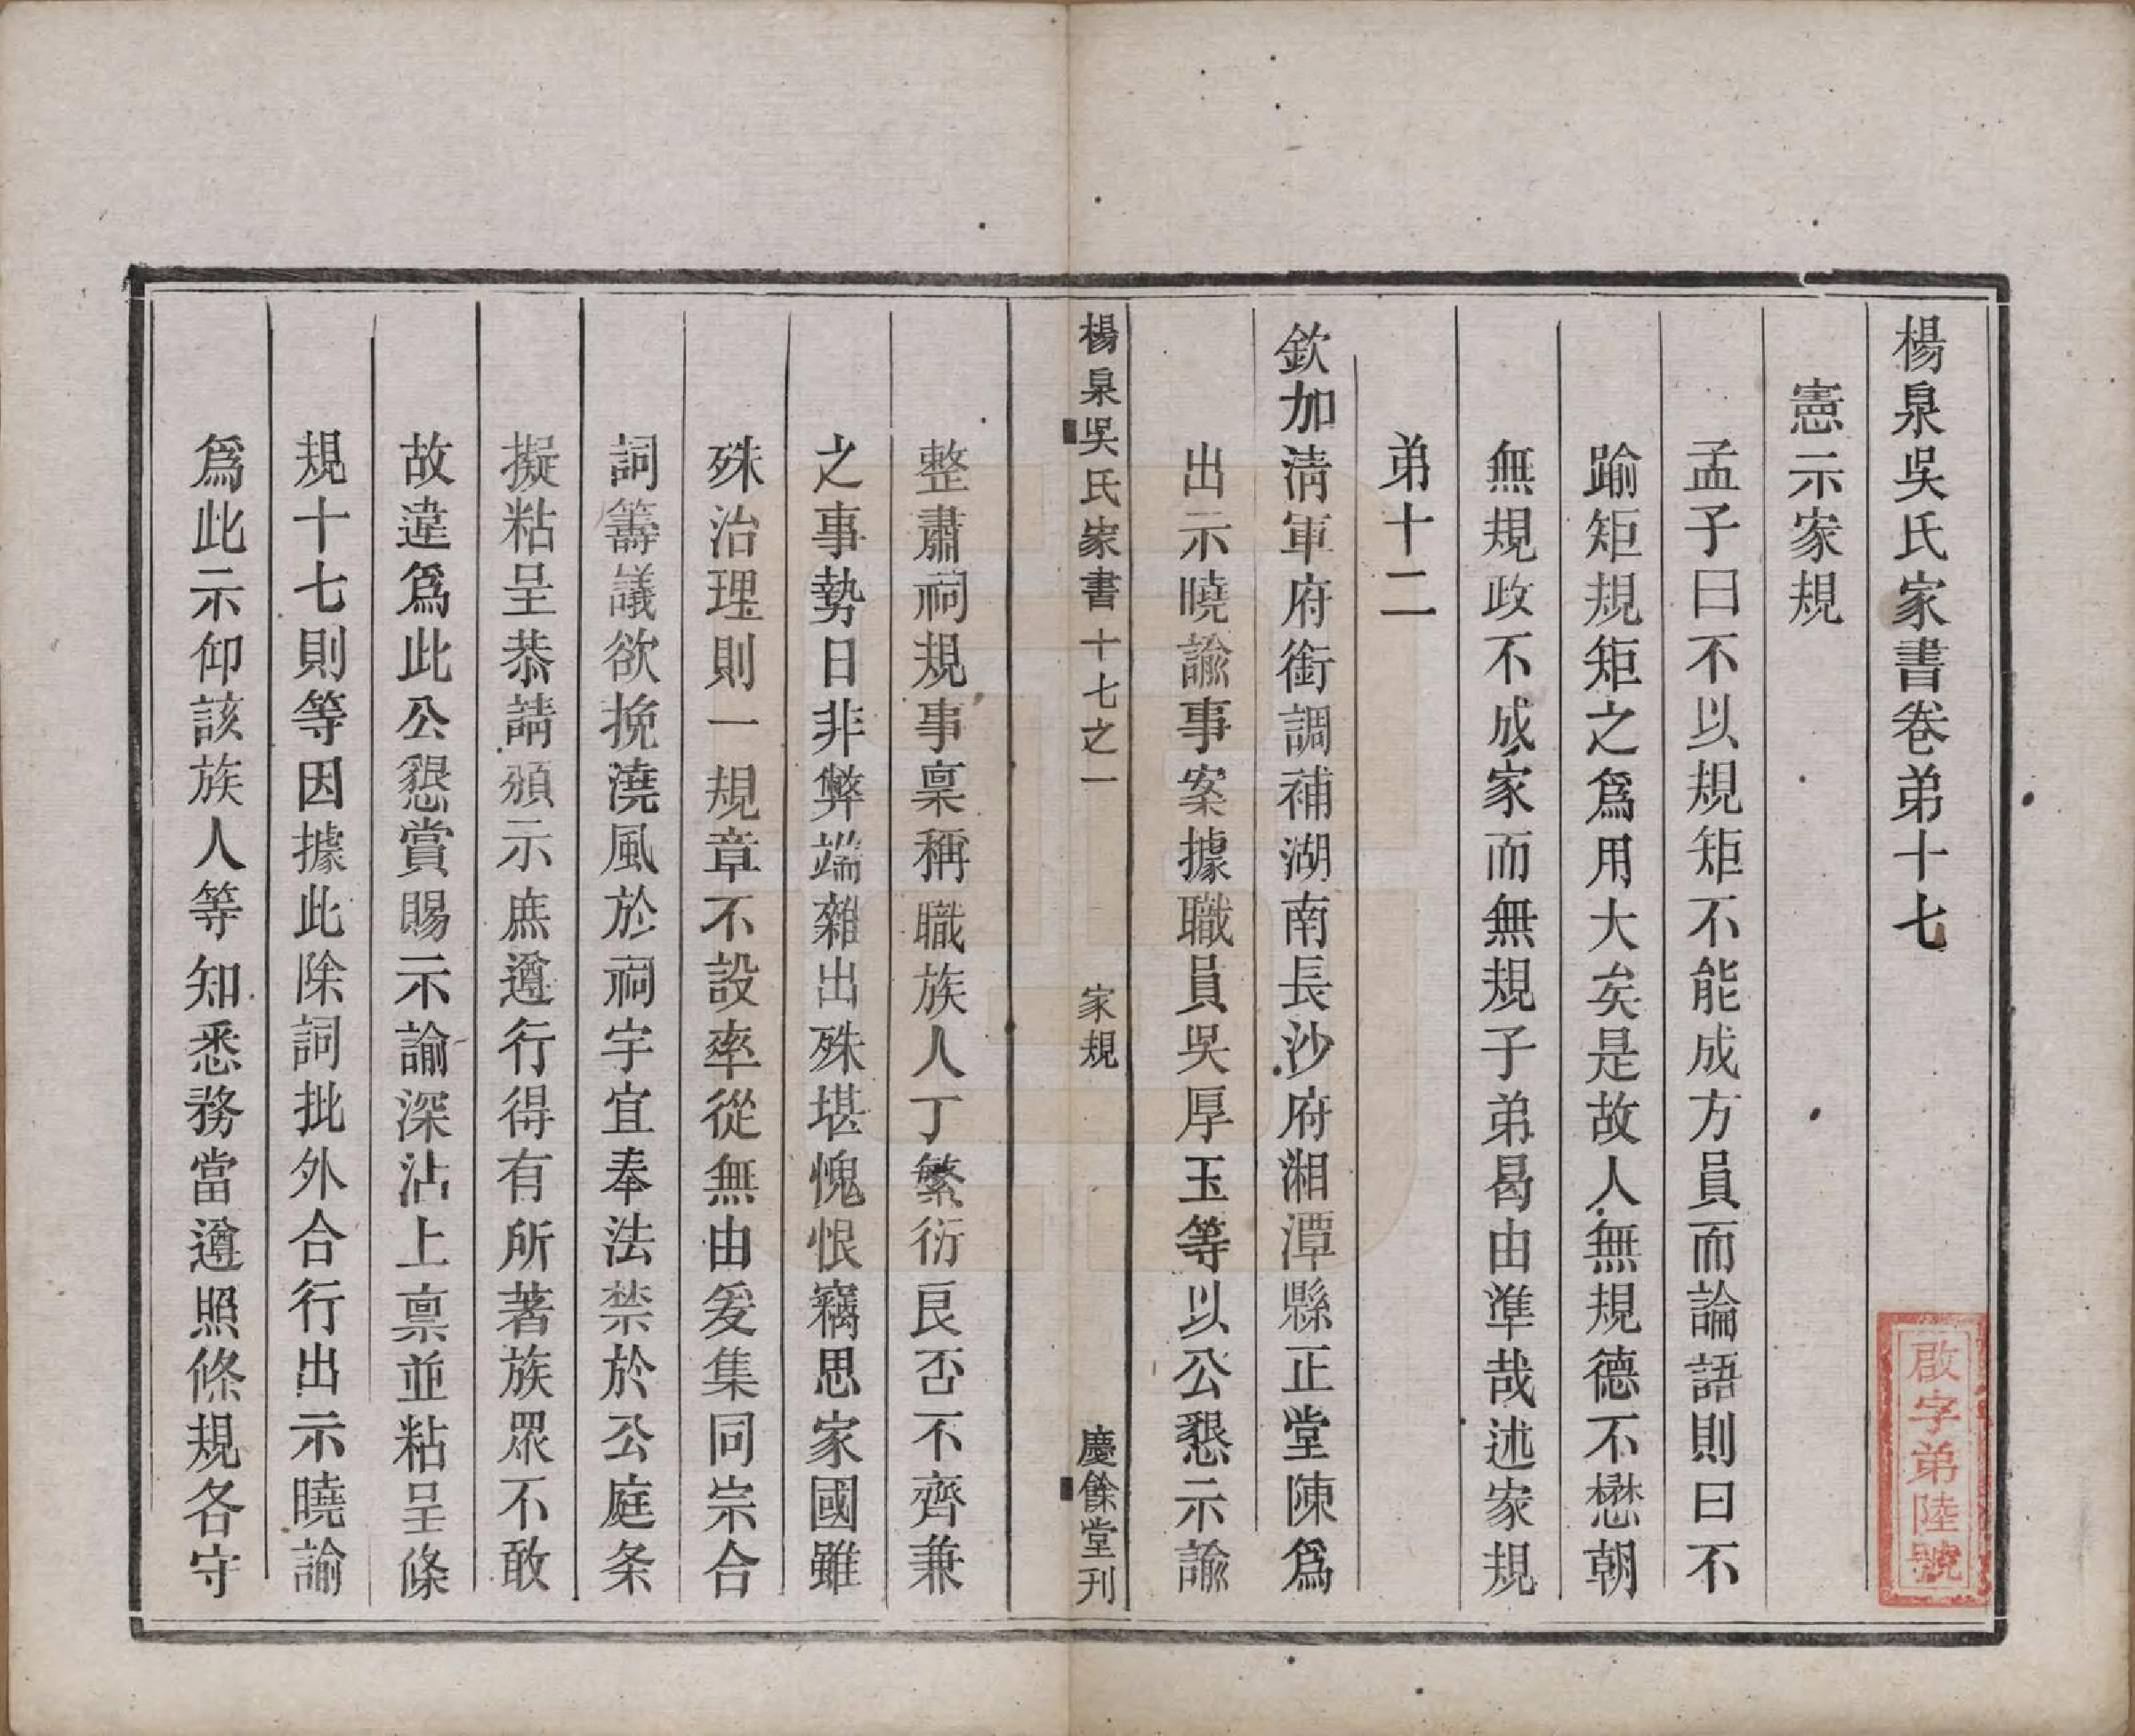 楊泉吳氏家書卷弟十七
憲示家規
孟子曰不以規矩不能成方員而論語則曰不
踰矩規矩之爲用大矣是故人無規德不懋朝
無規政不成家而無規子弟曷由準哉述家規
弟十二
欽加淸軍府銜調補湖南長沙府湘潭縣正堂陳爲
出示曉諭事案據職員吳厚玉等以公懇示諭
楊泉吳氏家書十七之一
家規
慶餘堂刊
整肅祠規事稟稱職族人丁繁衍良否不齊兼
之事勢日非弊端雜出殊堪愧恨竊思家國雖
殊治理則一規章不設率從無由爰集同宗合
詞籌議欲挽澆風於祠宇宜奉法禁於公庭条
擬粘呈恭請頒示庶遵行得有所著族眾不敢
故違爲此公懇賞賜示諭深沾上稟並粘呈條
規十七則等因據此除詞批外合行出示曉諭
爲此示仰該族人等知悉務當遵照條規各守
啟字弟陸號